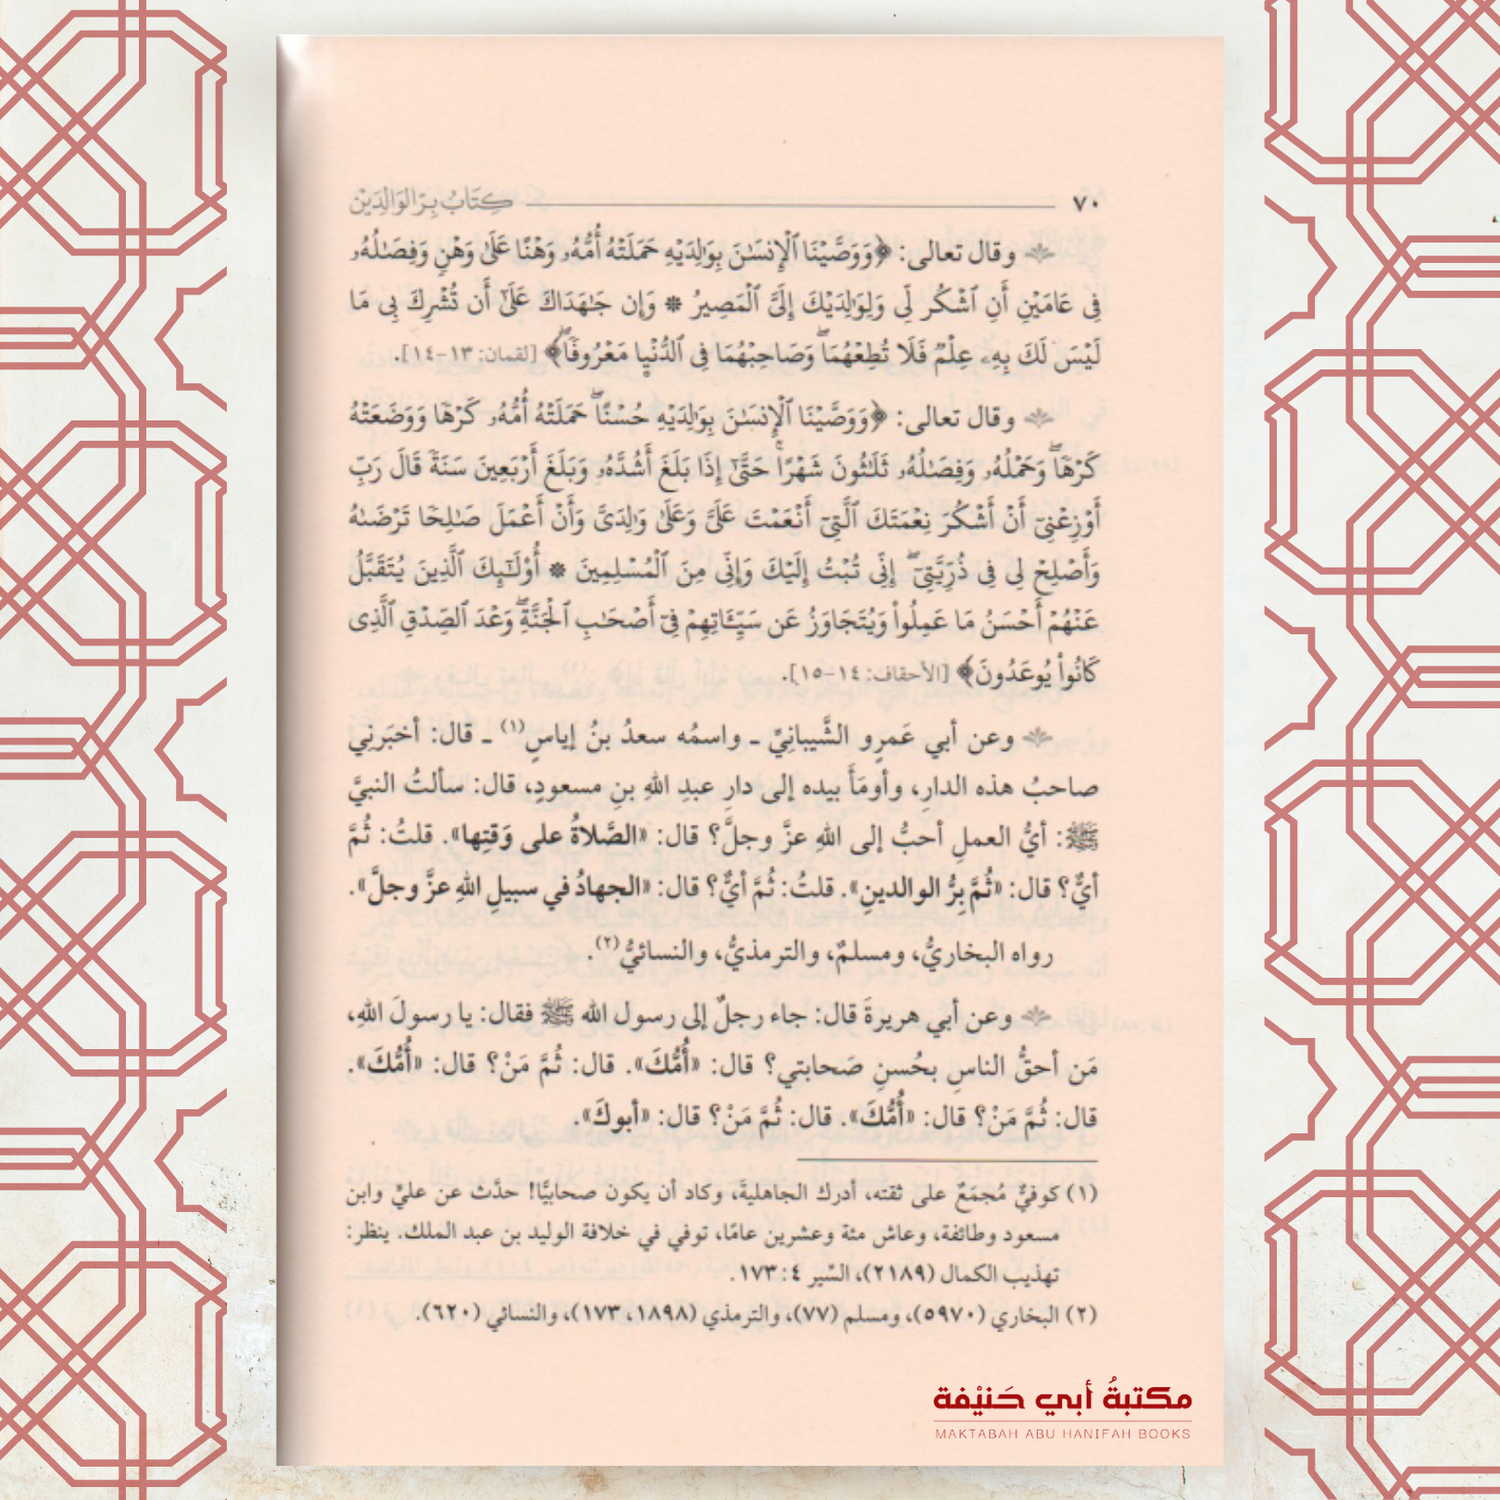 ٧٠ كِتَابُ بِرِّ الوَالِدَيْن
وقال تعالى: ﴿وَوَصَّيْنَا ٱلْإِنسَـٰنَ بِوَٰلِدَيْهِ حَمَلَتْهُ أُمُّهُۥ وَهْنًا عَلَىٰ وَهْنٍ وَفِصَـٰلُهُۥ
فِى عَامَيْنِ أَنِ ٱشْكُر لِّى وَلِوَٰلِدَيْكَ إِلَىَّ ٱلْمَصِيرُ * وَإِن جَـٰهَدَاكَ عَلَىٰٓ أَن تُشْرِكَ بِى مَا
لَيْسَ لَكَ بِهِۦ عِلْمٌ فَلَا تُطِعْهُمَا ۖ وَصَاحِبْهُمَا فِى ٱلدُّنْيَا مَعْرُوفًا ۖ﴾ [لقمان: ١٣-١٤].
وقال تعالى: ﴿وَوَصَّيْنَا ٱلْإِنسَـٰنَ بِوَٰلِدَيْهِ حُسْنًا ۖ حَمَلَتْهُ أُمُّهُۥ كَرْهًا وَوَضَعَتْهُ
كَرْهًا ۖ وَحَمْلُهُۥ وَفِصَـٰلُهُۥ ثَلَـٰثُونَ شَهْرًا ۚ حَتَّىٰٓ إِذَا بَلَغَ أَشُدَّهُۥ وَبَلَغَ أَرْبَعِينَ سَنَةً قَالَ رَبِّ
أَوْزِعْنِىٓ أَنْ أَشْكُرَ نِعْمَتَكَ ٱلَّتِىٓ أَنْعَمْتَ عَلَىَّ وَعَلَىٰ وَٰلِدَىَّ وَأَنْ أَعْمَلَ صَـٰلِحًا تَرْضَىٰهُ
وَأَصْلِحْ لِى فِى ذُرِّيَّتِىٓ ۖ إِنِّى تُبْتُ إِلَيْكَ وَإِنِّى مِنَ ٱلْمُسْلِمِينَ * أُو۟لَـٰٓئِكَ ٱلَّذِينَ يُتَقَبَّلُ
عَنْهُمْ أَحْسَنُ مَا عَمِلُوا۟ وَيُتَجَاوَزُ عَن سَيِّـَٔاتِهِمْ فِىٓ أَصْحَـٰبِ ٱلْجَنَّةِ ۖ وَعْدَ ٱلصِّدْقِ ٱلَّذِى
كَانُوا۟ يُوعَدُونَ﴾ [الأحقاف: ١٤-١٥].
وعن أبي عَمرٍو الشَّيبانِيِّ ـ واسمُه سعدُ بنُ إياسٍ(١) ـ قال: أخبَرني
صاحبُ هذه الدارِ، وأومَأَ بيده إلى دارِ عبدِ اللهِ بنِ مسعودٍ، قال: سألتُ النبيَّ
ﷺ: أيُّ العملِ أحبُّ إلى اللهِ عزَّ وجلَّ؟ قال: «الصَّلاةُ على وَقتِها». قلتُ: ثُمَّ
أيٌّ؟ قال: «ثُمَّ بِرُّ الوالدينِ». قلتُ: ثُمَّ أيٌّ؟ قال: «الجهادُ في سبيلِ اللهِ عزَّ وجلَّ».
رواه البخاريُّ، ومسلمٌ، والترمذيُّ، والنسائيُّ(٢).
وعن أبي هريرةَ قال: جاء رجلٌ إلى رسول الله ﷺ فقال: يا رسولَ اللهِ،
مَن أحقُّ الناسِ بحُسنِ صَحابتي؟ قال: «أُمُّكَ». قال: ثُمَّ مَنْ؟ قال: «أُمُّكَ».
قال: ثُمَّ مَنْ؟ قال: «أُمُّكَ». قال: ثُمَّ مَنْ؟ قال: «أبوكَ».
(١) كوفيٌّ مُجمَعٌ على ثقته، أدرك الجاهليةَ، وكاد أن يكون صحابيًّا! حدَّث عن عليٍّ وابن
مسعود وطائفة، وعاش مئة وعشرين عامًا، توفي في خلافة الوليد بن عبد الملك. ينظر:
تهذيب الكمال (٢١٨٩)، السِّير ٤: ١٧٣.
(٢) البخاري (٥٩٧٠)، ومسلم (٧٧)، والترمذي (١٨٩٨، ١٧٣)، والنسائي (٦٢٠).
مكتبةُ أبي حَنيْفة
MAKTABAH ABU HANIFAH BOOKS